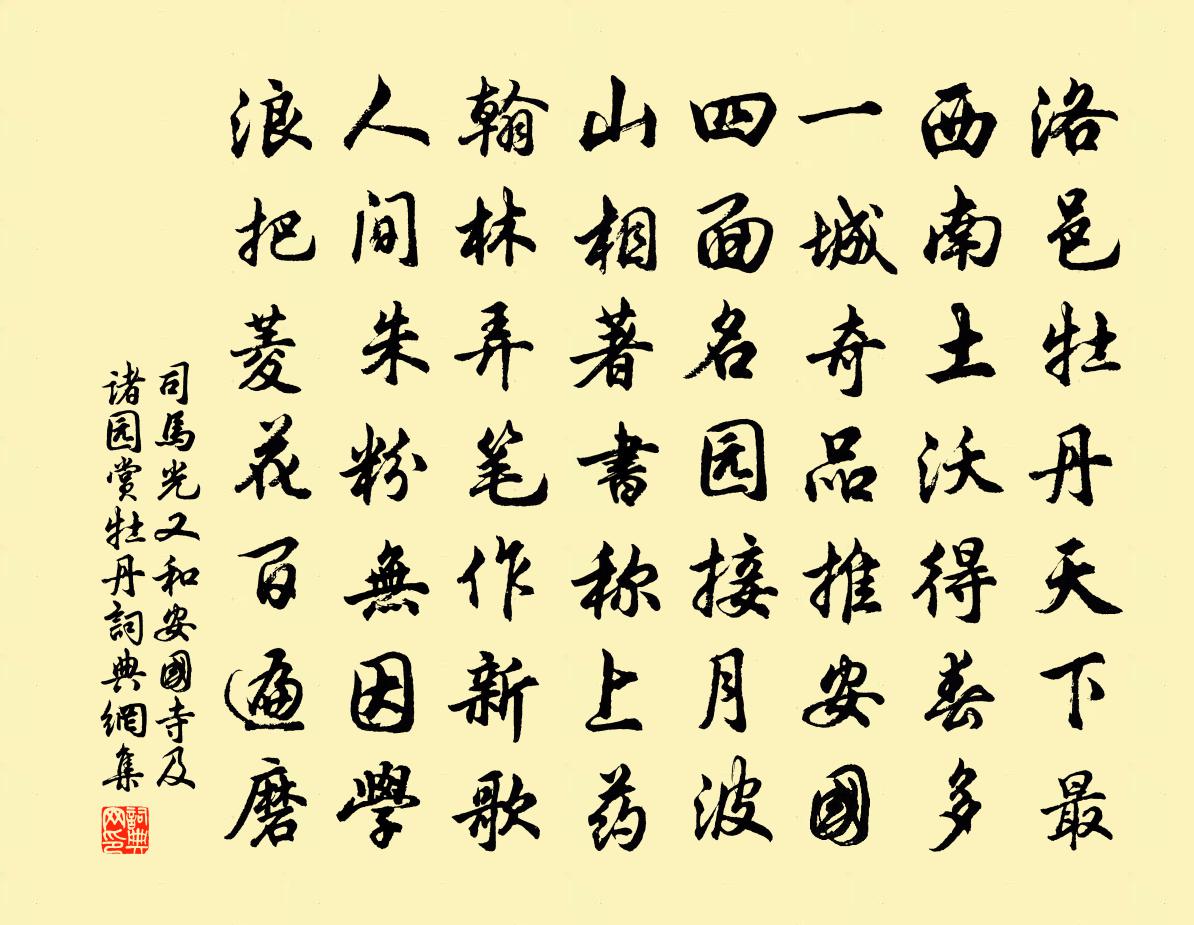 洛邑牡丹天下最
西南土沃得春多
一城奇品推安國
四面名园接月波
山相著書称上药
翰林弄笔作新歌
人间朱粉無因學
浪把菱花百遍磨
司馬光又和安國寺及
诸园赏牡丹詞典網集
詞典网印